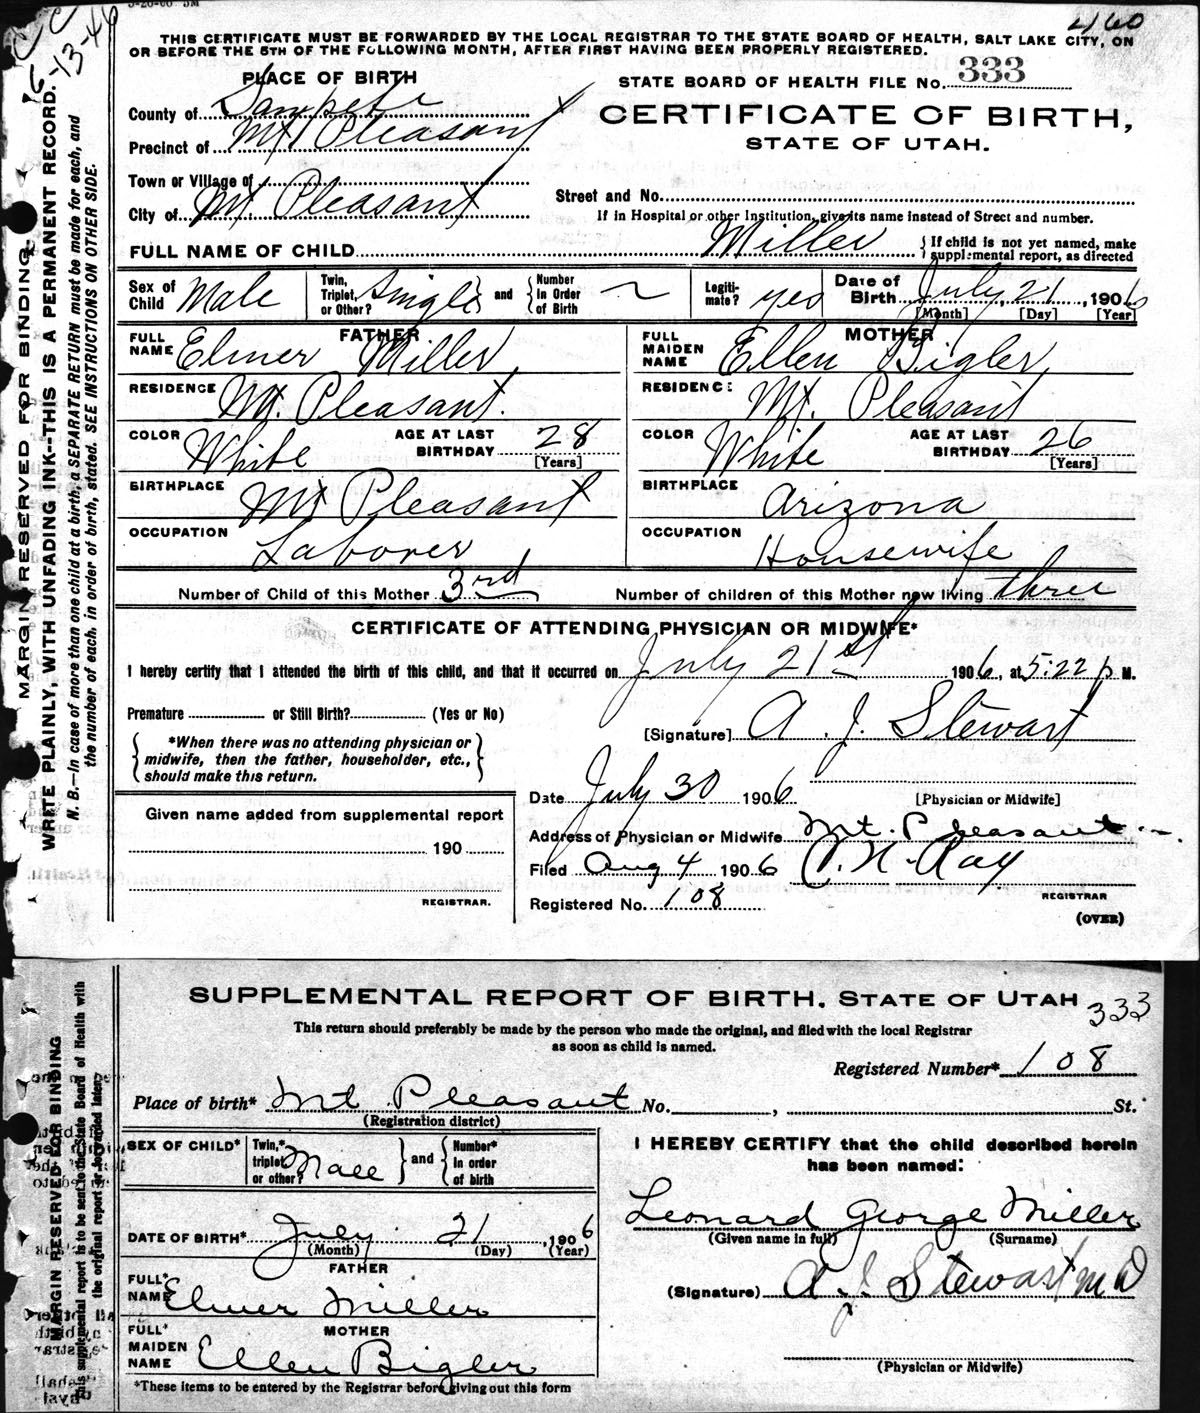 4/60
6-13-46
THIS CERTIFICATE MUST BE FORWARDED BY THE LOCAL REGISTRAR TO THE STATE BOARD OF HEALTH, SALT LAKE CITY, ON
OR BEFORE THE 5TH OF THE FOLLOWING MONTH, AFTER FIRST HAVING BEEN PROPERLY REGISTERED.
PLACE OF BIRTH
STATE BOARD OF HEALTH FILE No. 333
County of Sanpete
CERTIFICATE OF BIRTH,
Precinct of Mt Pleasant
STATE OF UTAH.
Town or Village of
Street and No.
City of Mt Pleasant
If in Hospital or other Institution, give its name instead of Street and number.
FULL NAME OF CHILD Miller
{ If child is not yet named, make
supplemental report, as directed
Sex of Child Male
Twin, Triplet, or Other? Single } and { Number in Order of Birth
Legitimate? yes
Date of Birth July, 21, 1906
[Month] [Day] [Year]
FATHER
MOTHER
FULL NAME Elmer Miller
FULL MAIDEN NAME Ellen Bigler
RESIDENCE Mt. Pleasant.
RESIDENCE Mt. Pleasant
COLOR White AGE AT LAST BIRTHDAY 28 [Years]
COLOR White AGE AT LAST BIRTHDAY 26 [Years]
BIRTHPLACE Mt Pleasant
BIRTHPLACE Arizona
OCCUPATION Laborer
OCCUPATION Housewife
Number of Child of this Mother 3rd
Number of children of this Mother now living three
CERTIFICATE OF ATTENDING PHYSICIAN OR MIDWIFE*
I hereby certify that I attended the birth of this child, and that it occurred on July 21st 1906, at 5:22 p M.
Premature or Still Birth? (Yes or No)
[Signature] A. J. Stewart
{ *When there was no attending physician or
midwife, then the father, householder, etc.,
should make this return. }
Date July 30 1906
[Physician or Midwife]
Given name added from supplemental report
190
REGISTRAR.
Address of Physician or Midwife Mt. Pleasant
Filed Aug 4 1906
REGISTRAR
Registered No. 108
(OVER)
MARGIN RESERVED FOR BINDING.
WRITE PLAINLY, WITH UNFADING INK--THIS IS A PERMANENT RECORD.
N. B.—In case of more than one child at a birth, a SEPARATE RETURN must be made for each, and
the number of each, in order of birth, stated. SEE INSTRUCTIONS ON OTHER SIDE.
SUPPLEMENTAL REPORT OF BIRTH. STATE OF UTAH
333
This return should preferably be made by the person who made the original, and filed with the local Registrar
as soon as child is named.
Registered Number* 108
Place of birth* Mt Pleasant No. , St.
(Registration district)
SEX OF CHILD*
Twin,* triplet or other? Male } and { Number* in order of birth
I HEREBY CERTIFY that the child described herein
has been named:
Leonard George Miller
(Given name in full) (Surname)
DATE OF BIRTH* July 21, 1906
(Month) (Day) (Year)
FATHER
FULL* NAME Elmer Miller
(Signature) A. J. Stewart M D
MOTHER
FULL* MAIDEN NAME Ellen Bigler
(Physician or Midwife)
*These items to be entered by the Registrar before giving out this form
MARGIN RESERVED FOR BINDING
This supplemental report is to be sent to the State Board of Health with
the original report or forwarded later.